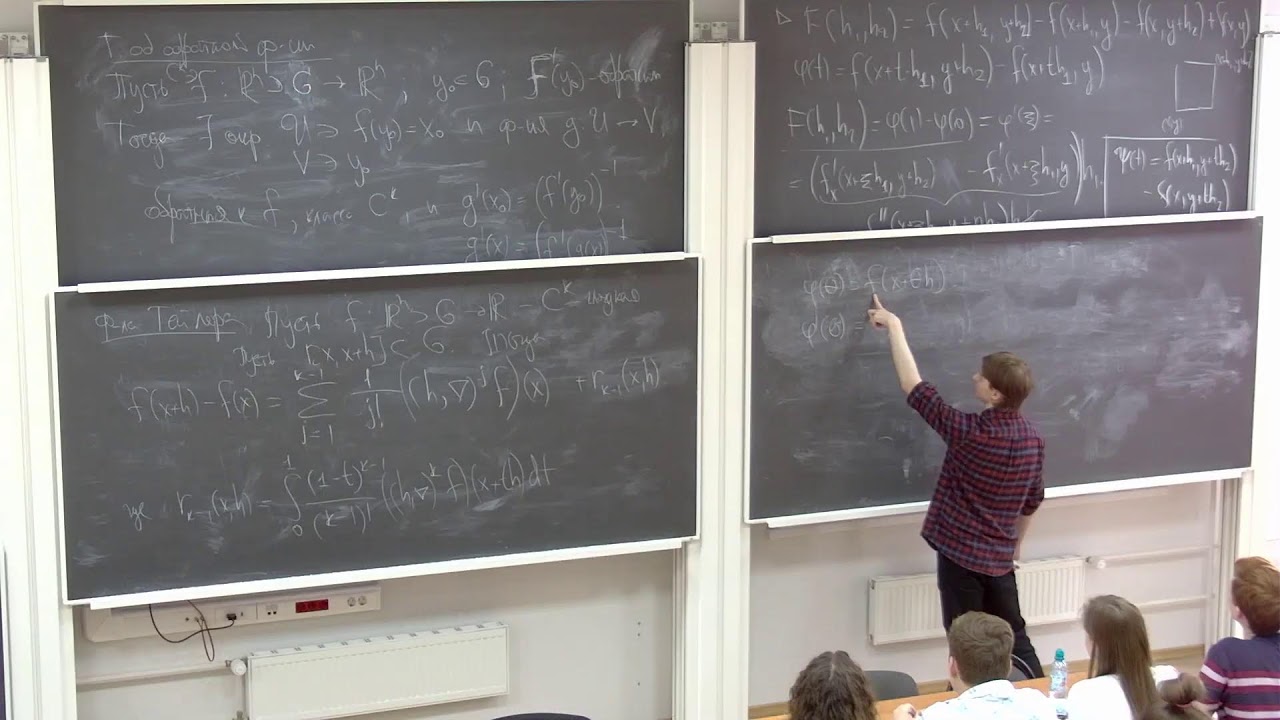 Т. об обратной ф-ии
Пусть C^k f : ℝ^n ⊃ G → ℝ^n ; y₀ ∈ G ; f'(y₀) - обратим
Тогда ∃ окр. U ∋ f(y₀) = x₀ и ф-ия g: U → V
V ∋ y₀
обратная к f, класса C^k, и g'(x₀) = (f'(y₀))^{-1}
g'(x) = (f'(g(x)))^{-1}
Ф-ла Тейлора. Пусть f: ℝ^n ⊃ G → ℝ - C^k - гладкая
Пусть [x, x+h] ⊂ G. Тогда
f(x+h) - f(x) = \sum_{j=1}^{k-1} \frac{1}{j!} ((h,∇)^j f)(x) + r_{k-1}(x,h)
где r_{k-1}(x,h) = \int_0^1 \frac{(1-t)^{k-1}}{(k-1)!} ((h,∇)^k f)(x+th) dt
▷ F(h₁,h₂) = f(x+h₁, y+h₂) - f(x+h₁, y) - f(x, y+h₂) + f(x,y)
φ(t) = f(x+t·h₁, y+h₂) - f(x+th₁, y)
F(h₁,h₂) = φ(1) - φ(0) = φ'(ξ) =
= (f'_x(x+ξh₁, y+h₂) - f'_x(x+ξh₁, y)) h₁
(x,y)
ψ(t) = f(x+h₁, y+th₂)
- f(x, y+th₂)
φ(t) = f(x+th)
φ'(t) =